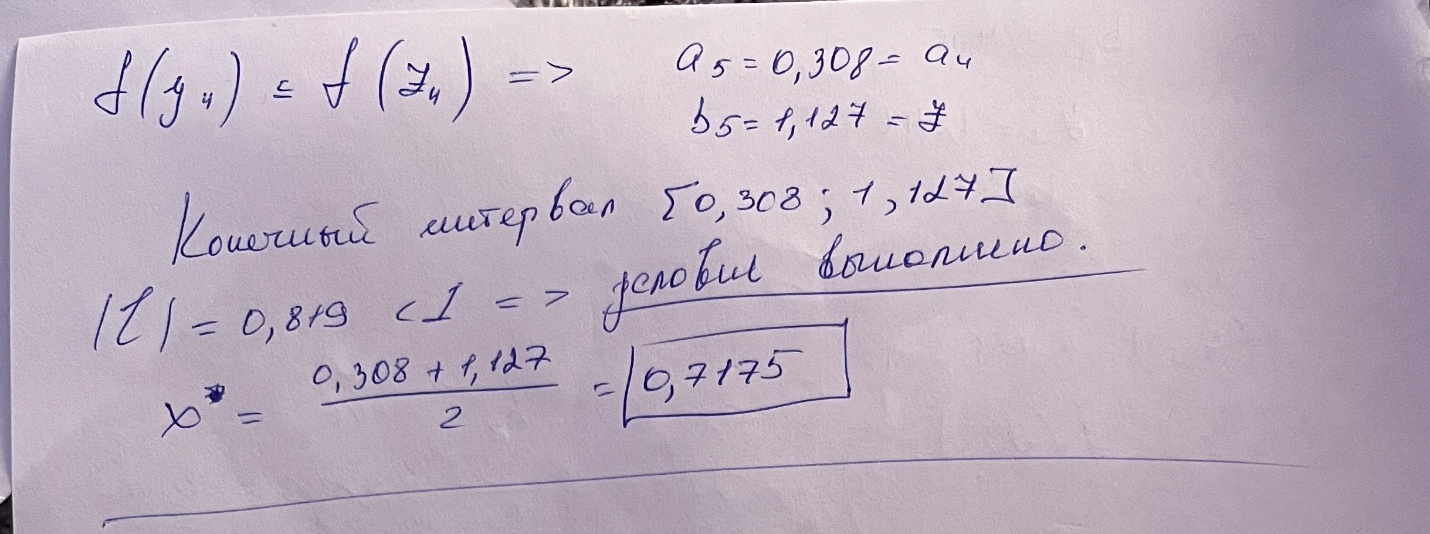 f(y₄) ≤ f(z₄) => a₅ = 0,308 = a₄
b₅ = 1,127 = z
Конечный интервал [0,308 ; 1,127]
|L| = 0,819 < 1 => условие выполнено.
x* = (0,308 + 1,127) / 2 = 0,7175